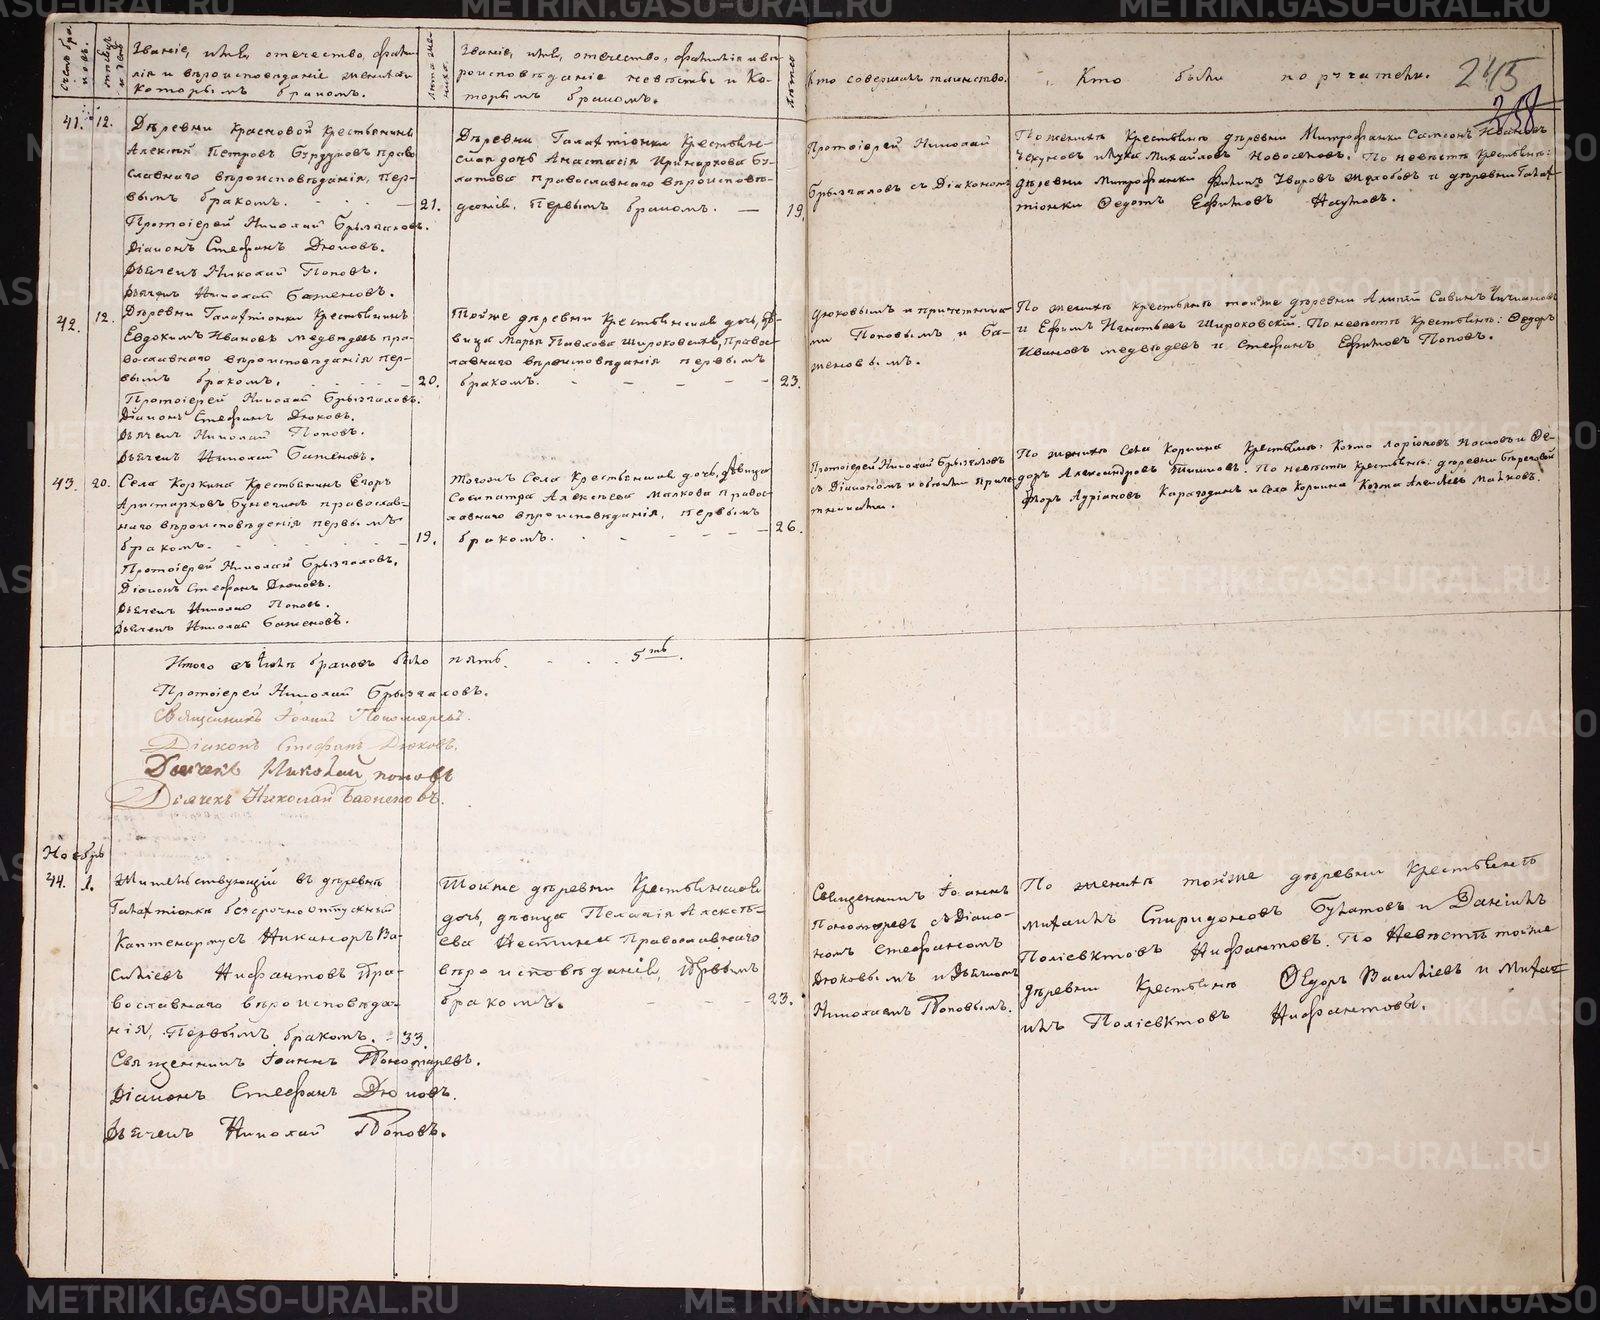 Счетъ бра-
ковъ.
Мѣсяцъ
и число
Званіе, имя, отечество, фами-
лія и вѣроисповѣданіе жениха и
которымъ бракомъ.
Лѣта же-
ниха.
Званіе, имя, отечество, фамилія и вѣ-
роисповѣданіе невѣсты и ко-
торымъ бракомъ.
Лѣта
Кто совершалъ таинство.
Кто были поручатели.
245
258
41. 12.
Деревни Красновой Крестьянинъ
Алексѣй Петровъ Бурдуковъ право-
славнаго вѣроисповѣданія, пер-
вымъ бракомъ. 21.
Протоіерей Николай Брызгаловъ.
Діаконъ Стефанъ Дюковъ.
Дьячекъ Николай Поповъ.
Дьячекъ Николай Баженовъ.
Деревни Галактіонки Крестьян-
ская дочь Анастасія Иринархова Бу-
латова православнаго вѣроисповѣ-
данія, первымъ бракомъ. — 19.
Протоіерей Николай
Брызгаловъ съ Діакономъ
По женихѣ Крестьяне деревни Митрофанки Самсонъ Ивановъ
Чекуновъ и Лука Михайловъ Новоселовъ. По невѣстѣ Крестьяне:
деревни Митрофанки Филипъ Уваровъ Жолобовъ и деревни Галак-
тіонки Федотъ Ефимовъ Наумовъ.
42. 12.
Деревни Галактіонки Крестьянинъ
Евдокимъ Ивановъ Медведевъ пра-
вославнаго вѣроисповѣданія пер-
вымъ бракомъ. 20.
Протоіерей Николай Брызгаловъ.
Діаконъ Стефанъ Дюковъ.
Дьячекъ Николай Поповъ.
Дьячекъ Николай Баженовъ.
Тойже деревни Крестьянская дочь, дѣ-
вица Марья Павлова Широковскихъ, право-
славнаго вѣроисповѣданія первымъ
бракомъ. 23.
Дюковымъ и причетника-
ми Поповымъ и Ба-
женовымъ.
По женихѣ крестьяне тойже деревни Алипій Савинъ
и Ефимъ Игнатьевъ Широковскій. По невѣстѣ Крестьяне: Федоръ
Ивановъ Медведевъ и Стефанъ Ефимовъ Поповъ.
43. 20.
Села Коркина Крестьянинъ Егоръ
Аристарховъ Бунегинъ православ-
наго вѣроисповѣданія первымъ
бракомъ. 19.
Протоіерей Николай Брызгаловъ.
Діаконъ Стефанъ Дюковъ.
Дьячекъ Николай Поповъ.
Дьячекъ Николай Баженовъ.
Тогожъ Села Крестьянская дочь, дѣвица
Сосипатра Алексѣева Малкова Правос-
лавнаго вѣроисповѣданія, первымъ
бракомъ. 26.
Протоіерей Николай Брызгаловъ
съ Діакономъ и обоими приче-
тниками.
По женихѣ Села Коркина Крестьяне: Козма Ларіоновъ Носковъ и Фе-
доръ Александровъ Тишковъ. По невѣстѣ крестьяне: деревни Береговой
Флоръ Адріановъ Карагодинъ и Села Коркина Козма Алексѣевъ Малковъ.
Итого въ Іюлѣ браковъ было пять. 5ть.
Протоіерей Николай Брызгаловъ.
Священникъ Іоаннъ Пономаревъ.
Діаконъ Стефанъ Дюковъ.
Дьячекъ Николай поповъ
Дьячекъ Николай Баженовъ.
Ноябрь
44. 1.
Жительствующій въ деревнѣ
Галактіонкѣ безсрочно отпускный
Каптенармусъ Никаноръ Ва-
сильевъ Нифантовъ Пра-
вославнаго вѣроисповѣда-
нія, Первымъ бракомъ. 33.
Священникъ Іоаннъ Пономаревъ.
Діаконъ Стефанъ Дюковъ.
Дьячекъ Николай Поповъ.
Тойже деревни Крестьянская
дочь, дѣвица Пелагія Алексѣ-
ева Православнаго
вѣроисповѣданія, первымъ
бракомъ. 23.
Священникъ Іоаннъ
Пономаревъ съ Діако-
номъ Стефаномъ
Дюковымъ и Дьячкомъ
Николаемъ Поповымъ.
По женихѣ тойже деревни Крестьяне
Михаилъ Спиридоновъ Булатовъ и Даніилъ
Поліевктовъ Нифантовъ. По Невѣстѣ тойже
деревни Крестьяне Федоръ Васильевъ и Миха-
илъ Поліевктовъ Нифантовы.
METRIKI.GASO-URAL.RU